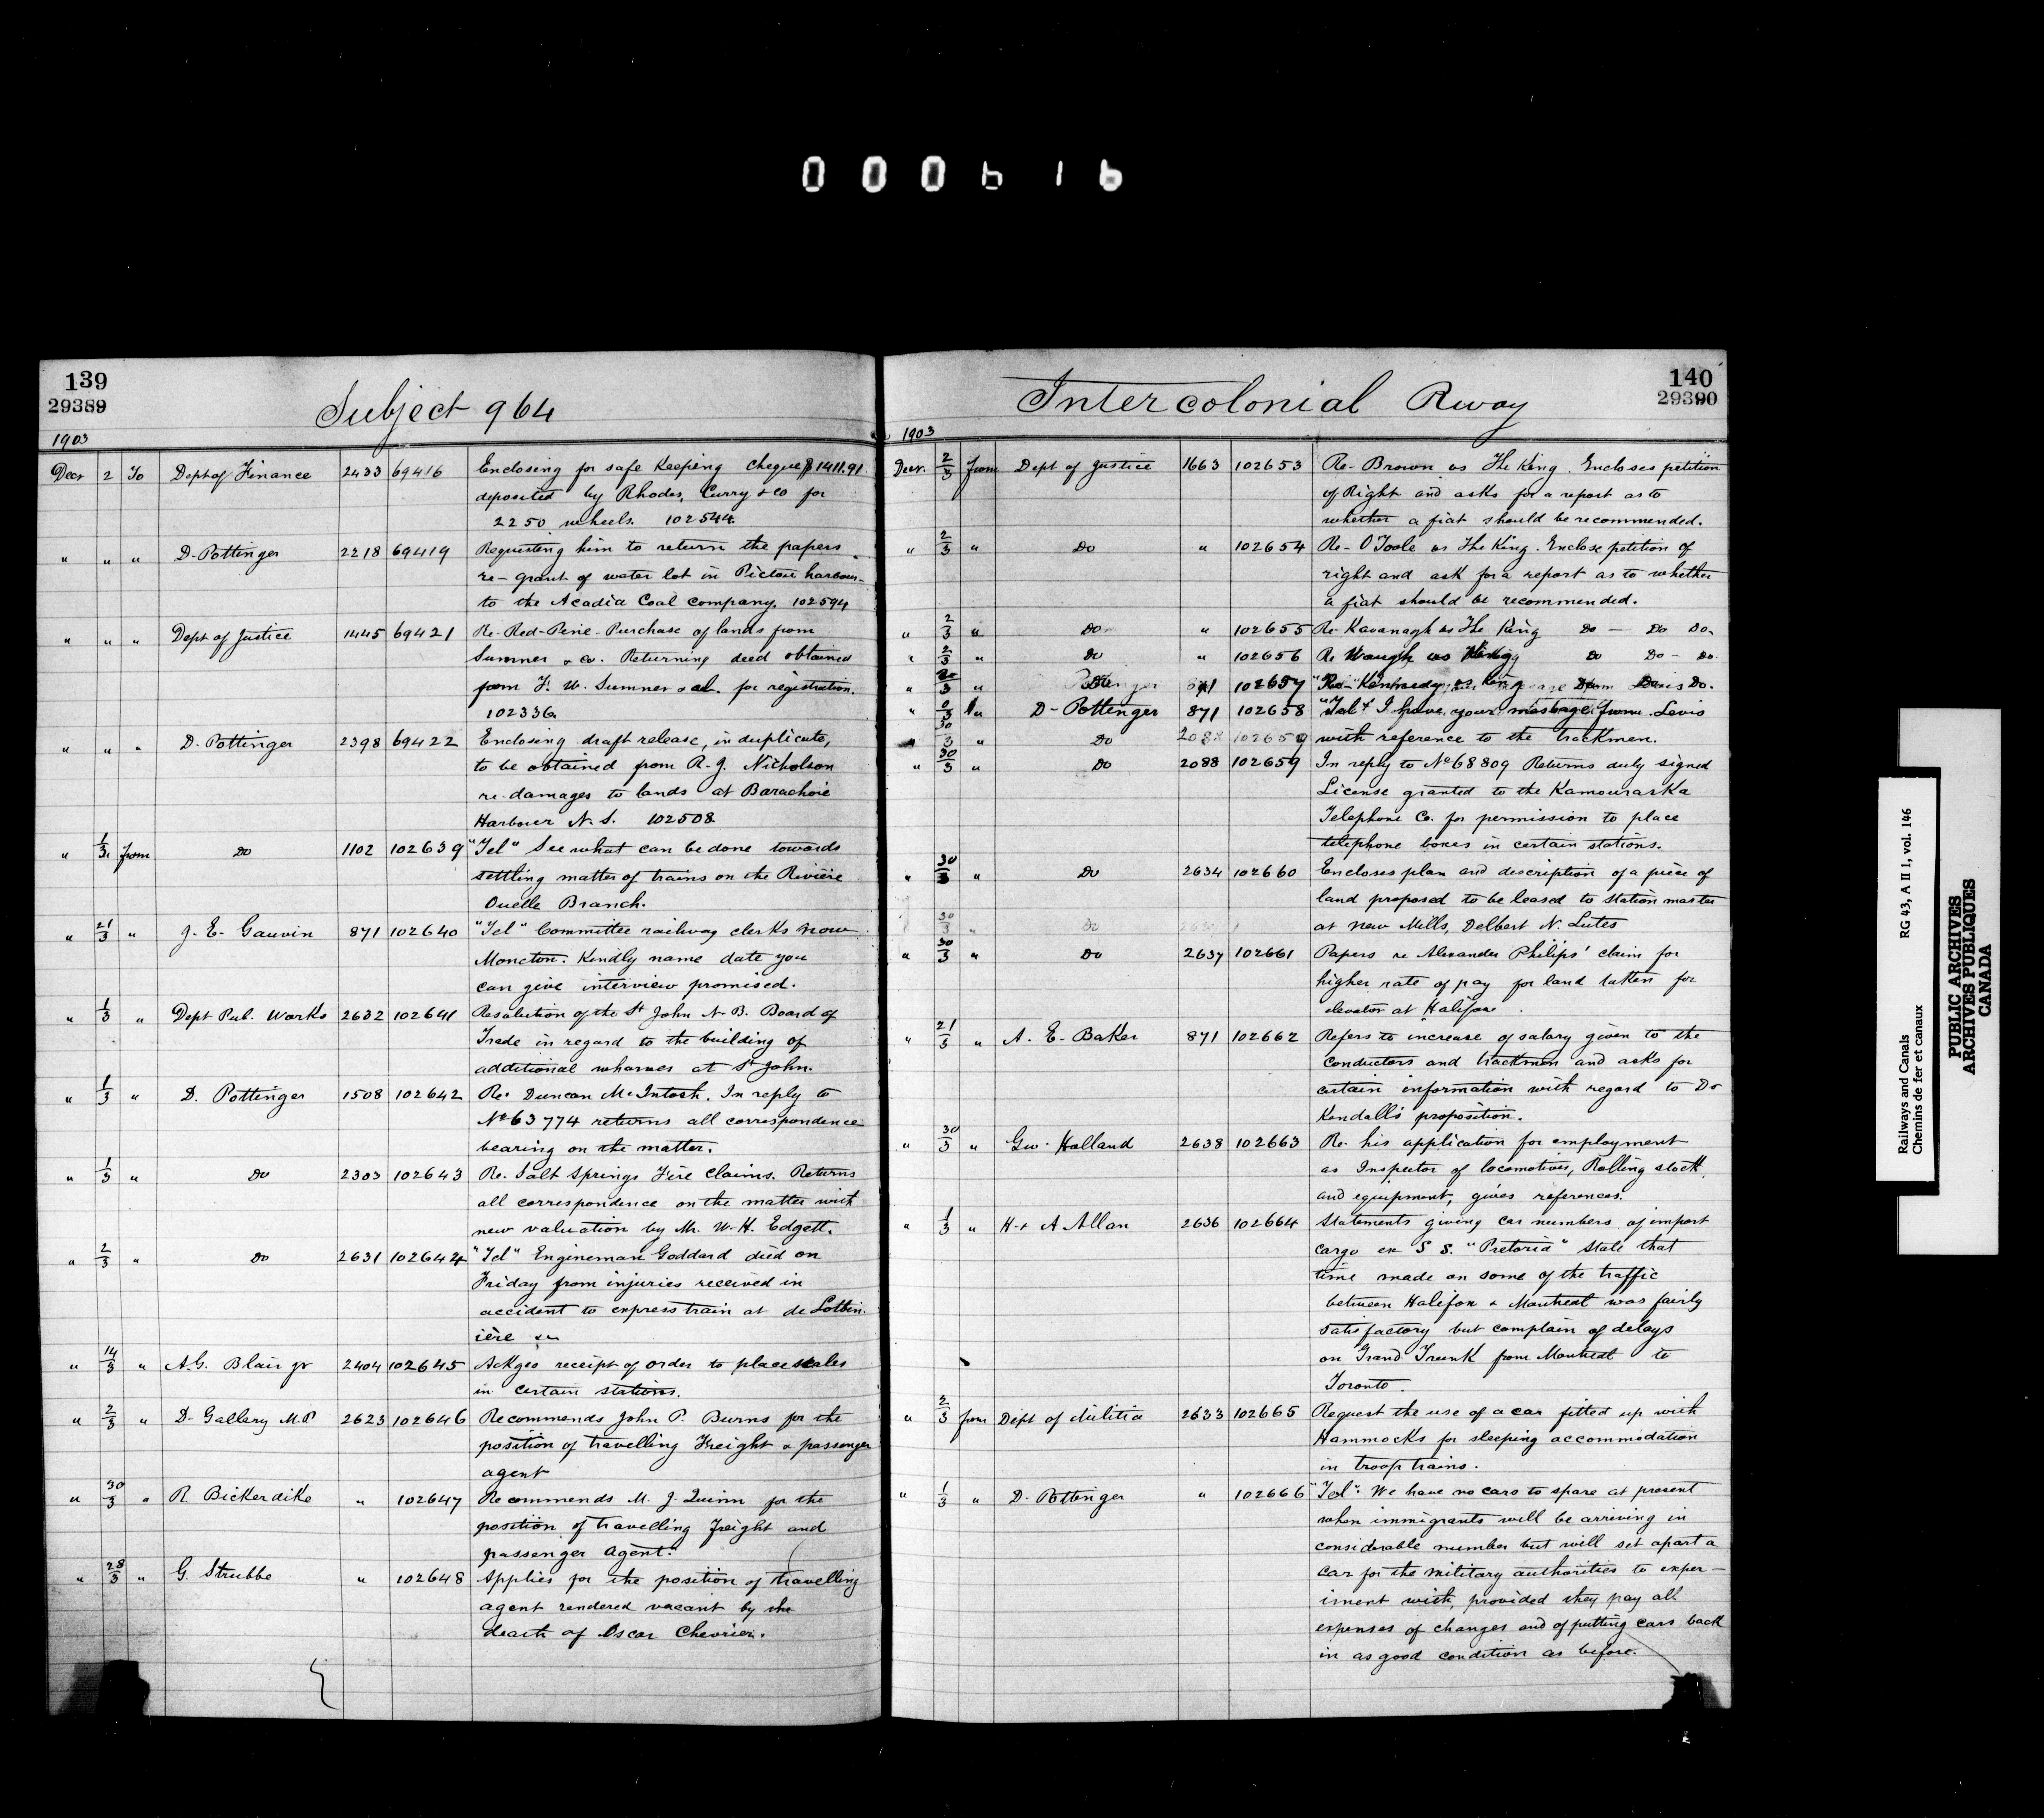 000616
139
29389
Subject 964
1903
Decr 2 To Dept of Finance 2433 69416 Enclosing for safe keeping cheque $1411.91
deposited by Rhodes, Curry & Co for
2250 wheels. 102544.
" " " D. Pottinger 2218 69419 Requesting him to return the papers
re- grant of water lot in Pictou harbour
to the Acadia Coal Company. 102594
" " " Dept of Justice 1445 69421 Re- Red-Pine- Purchase of lands from
Sumner & Co. Returning deed obtained
from F. W. Sumner & al. for registration.
102336.
" " " D. Pottinger 2398 69422 Enclosing draft release, in duplicate,
to be obtained from R. J. Nicholson
re-damages to lands at Barachoie
Harbour N.S. 102508
" 1/3 from Do 1102 102639 "Tel" See what can be done towards
settling matter of trains on the Rivière
Ouelle Branch.
" 21/3 " J. E. Gauvin 871 102640 "Tel" Committee railway clerks now
Moncton. Kindly name date you
can give interview promised.
" 1/3 " Dept Pub. Works 2632 102641 Resolution of the St John N. B. Board of
Trade in regard to the building of
additional wharves at St John.
" 1/3 " D. Pottinger 1508 102642 Re. Duncan McIntosh. In reply to
No 63774 returns all correspondence
bearing on the matter.
" 1/3 " Do 2303 102643 Re. Salt Springs Fire Claims. Returns
all correspondence on the matter with
new valuation by Mr. W. H. Edgett.
" 2/3 " Do 2631 102644 "Tel" Engineman Goddard died on
Friday from injuries received in
accident to express train at de Lotbin-
ière &c
" 14/3 " A.G. Blair jr 2404 102645 Ackges receipt of order to place scales
in certain stations.
" 2/3 " D. Gallery M.P 2623 102646 Recommends John P. Burns for the
position of travelling Freight & passenger
agent
" 30/3 " R. Bickerdike " 102647 Recommends M. J. Quinn for the
position of travelling Freight and
passenger Agent.
" 28/3 " G. Strubbe " 102648 Applies for the position of travelling
agent rendered vacant by the
death of Oscar Chevrier.
Intercolonial Rway
140
29390
1903
Decr. 2/3 from Dept of Justice 1663 102653 Re- Brown vs The King. Encloses petition
of Right and asks for a report as to
whether a fiat should be recommended.
" 2/3 " Do " 102654 Re- O'Toole vs The King. Enclose petition of
right and ask for a report as to whether
a fiat should be recommended.
" 2/3 " Do " 102655 Re- Kavanagh vs The King Do - Do Do.
" 2/3 " Do " 102656 Re Waugh vs King Do Do - Do.
" 3 " Do 102657 Re- Kennedy vs King Do.
" " D- Pottinger 871 102658 "Tel" I have your message from Levis
" 3 " Do 2088 102659 with reference to the trackmen.
" 30/3 " Do 2088 102659 In reply to No 68809 Returns duly signed
License granted to the Kamouraska
Telephone Co. for permission to place
telephone boxes in certain stations.
" 30/3 " Do 2634 102660 Encloses plan and description of a piece of
land proposed to be leased to station master
30/3 " Do at New Mills, Delbert N. Lutes
" 30/3 " Do 2637 102661 Papers re Alexander Philips' claim for
higher rate of pay for land taken for
elevator at Halifax.
" 21/3 " A. E. Baker 871 102662 Refers to increase of salary given to the
conductors and trackmen and asks for
certain information with regard to Do
Kendall's proposition.
" 30/3 " Geo. Holland 2638 102663 Re. his application for employment
as Inspector of locomotives, Rolling stock
and equipment, gives references.
" 1/3 " H. & A Allan 2636 102664 Statements giving car numbers of import
cargo ex S S. "Pretoria" State that
time made on some of the traffic
between Halifax & Montreal was fairly
satisfactory but complain of delays
on Grand Trunk from Montreal to
Toronto.
" 2/3 from Dept of Militia 2633 102665 Request the use of a car fitted up with
Hammocks for sleeping accommodation
in troop trains.
" 1/3 " D. Pottinger " 102666 "Tel". We have no cars to spare at present
when immigrants will be arriving in
considerable number but will set apart a
car for the military authorities to exper-
iment with, provided they pay all
expenses of changes and of putting cars back
in as good condition as before.
Railways and Canals RG 43, A II 1, vol. 146
Chemins de fer et canaux
PUBLIC ARCHIVES
ARCHIVES PUBLIQUES
CANADA